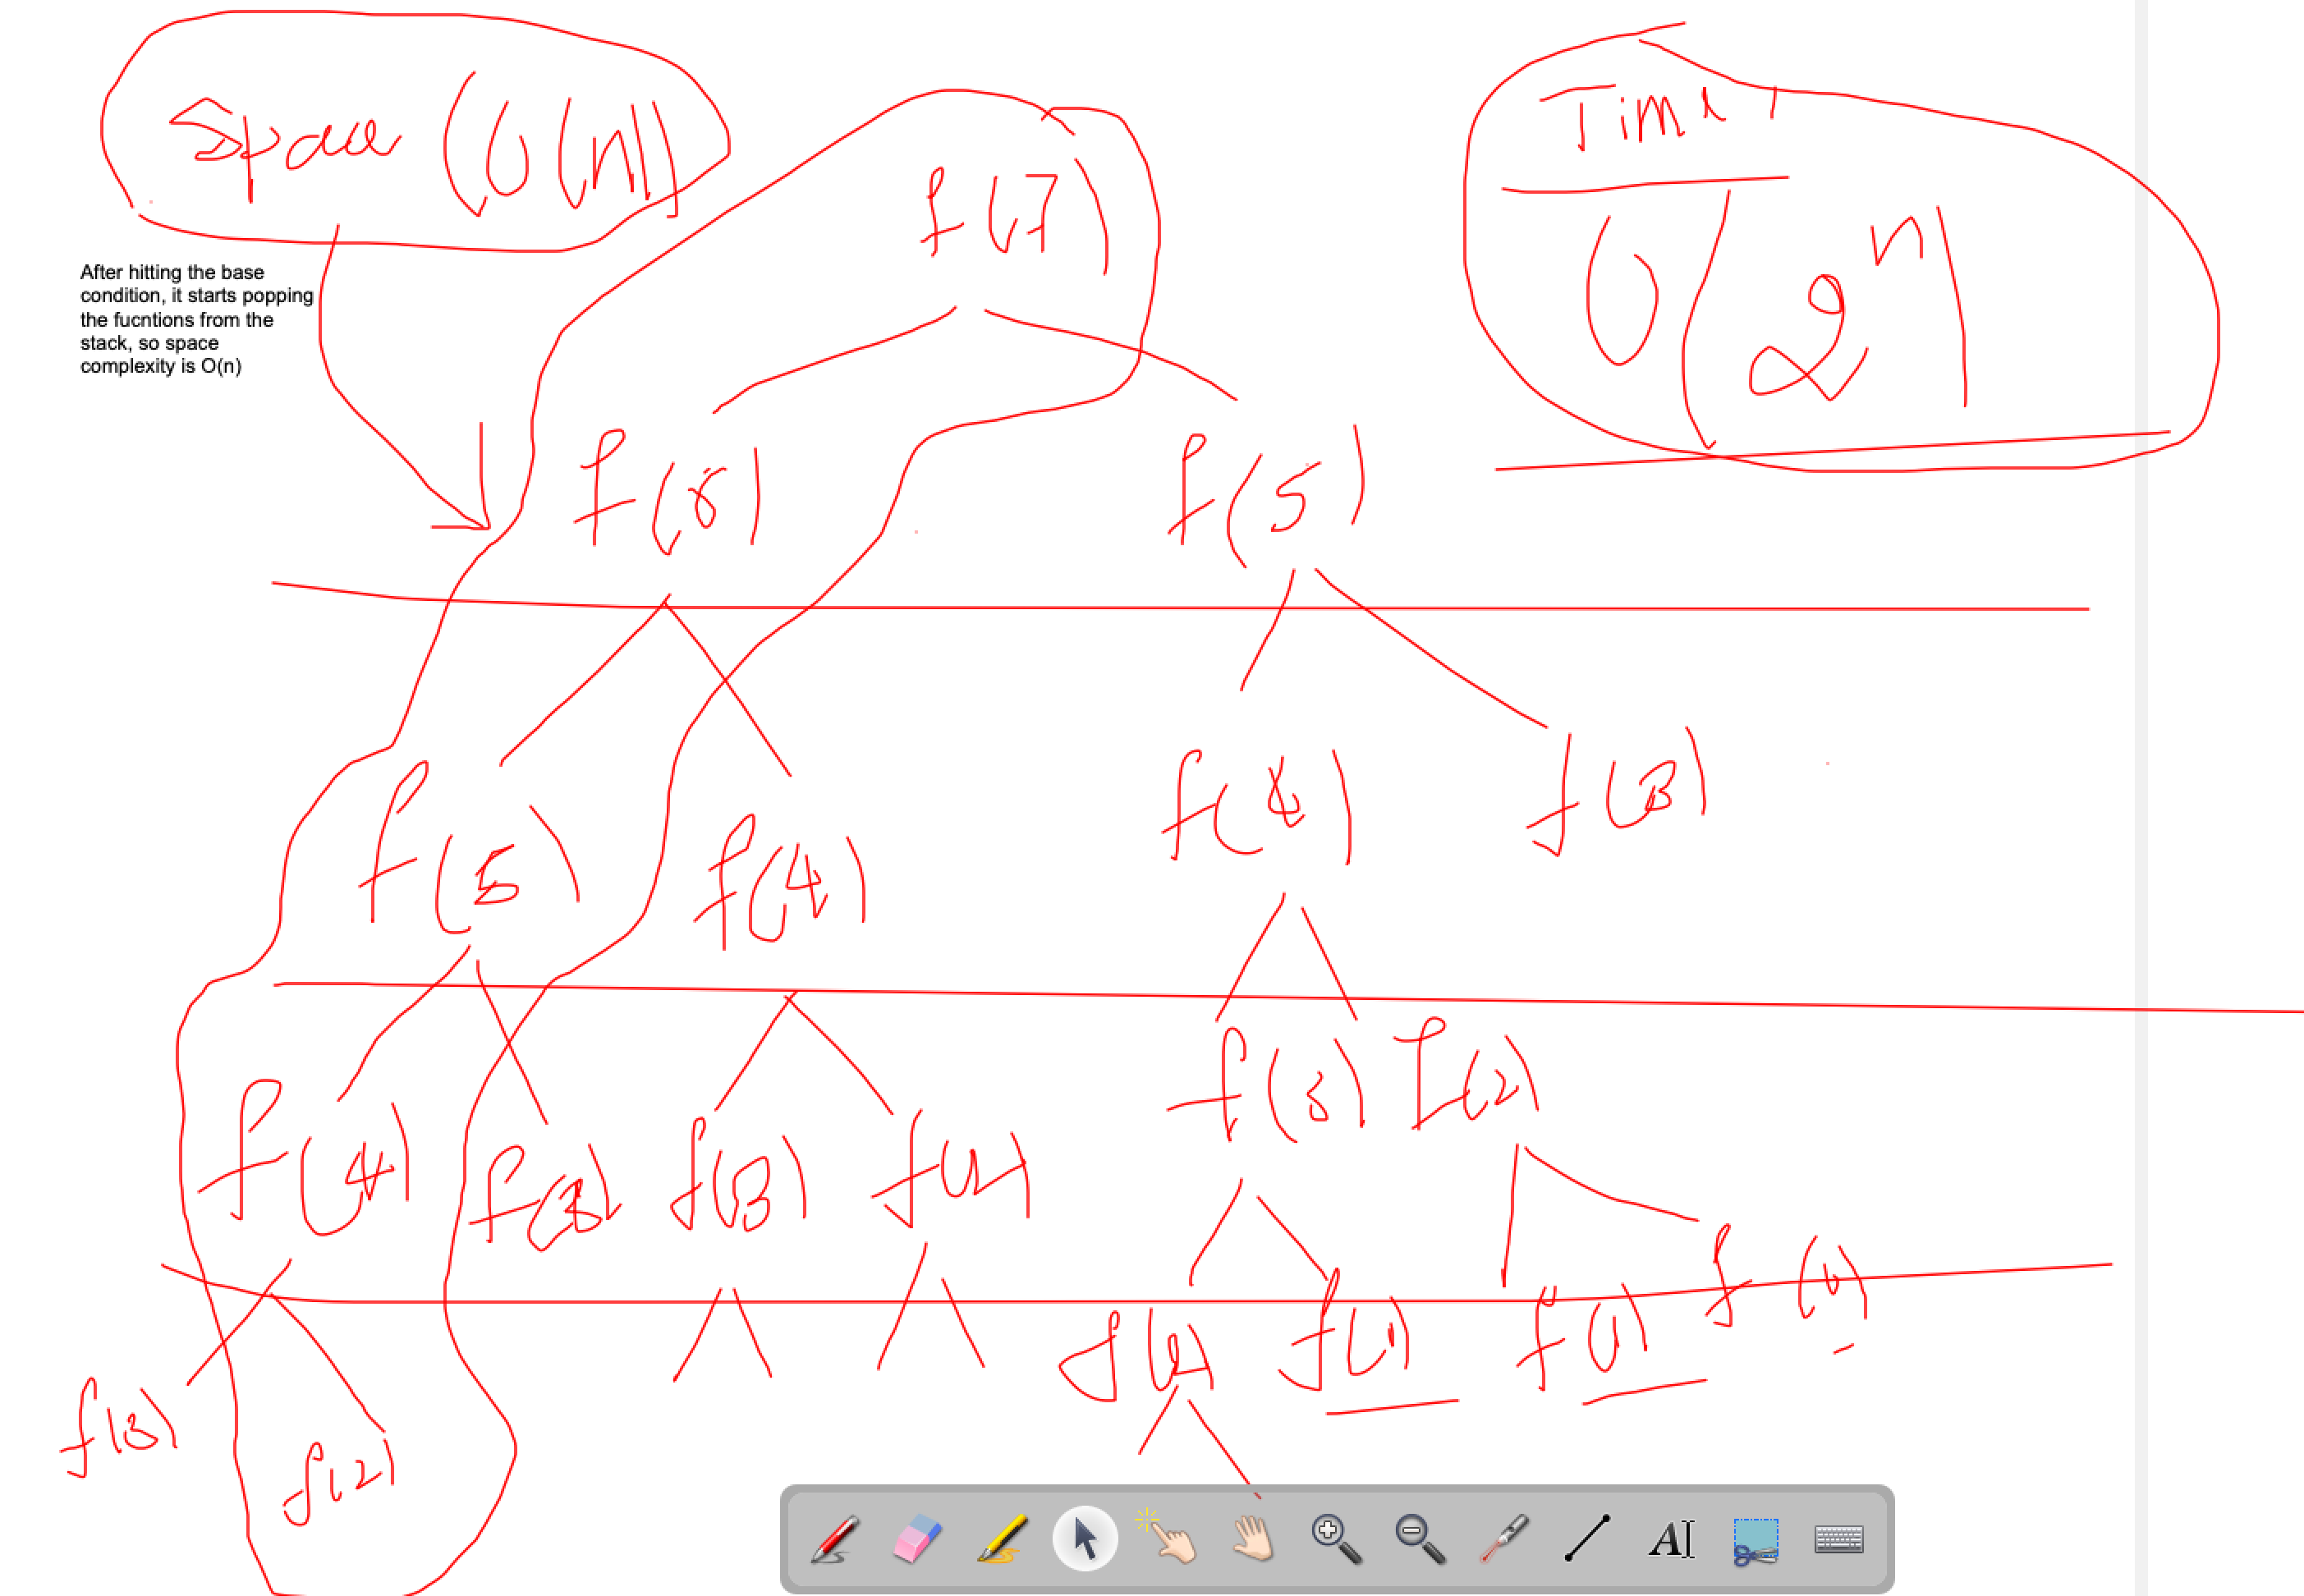 Space (O(n))
Time
O(2^n)
After hitting the base
condition, it starts popping
the fucntions from the
stack, so space
complexity is O(n)
f(7)
f(6) f(5)
f(5) f(4) f(4) f(3)
f(4) f(3) f(3) f(2) f(3) f(2)
f(3) f(2) f(2) f(1) f(1) f(0)
AI